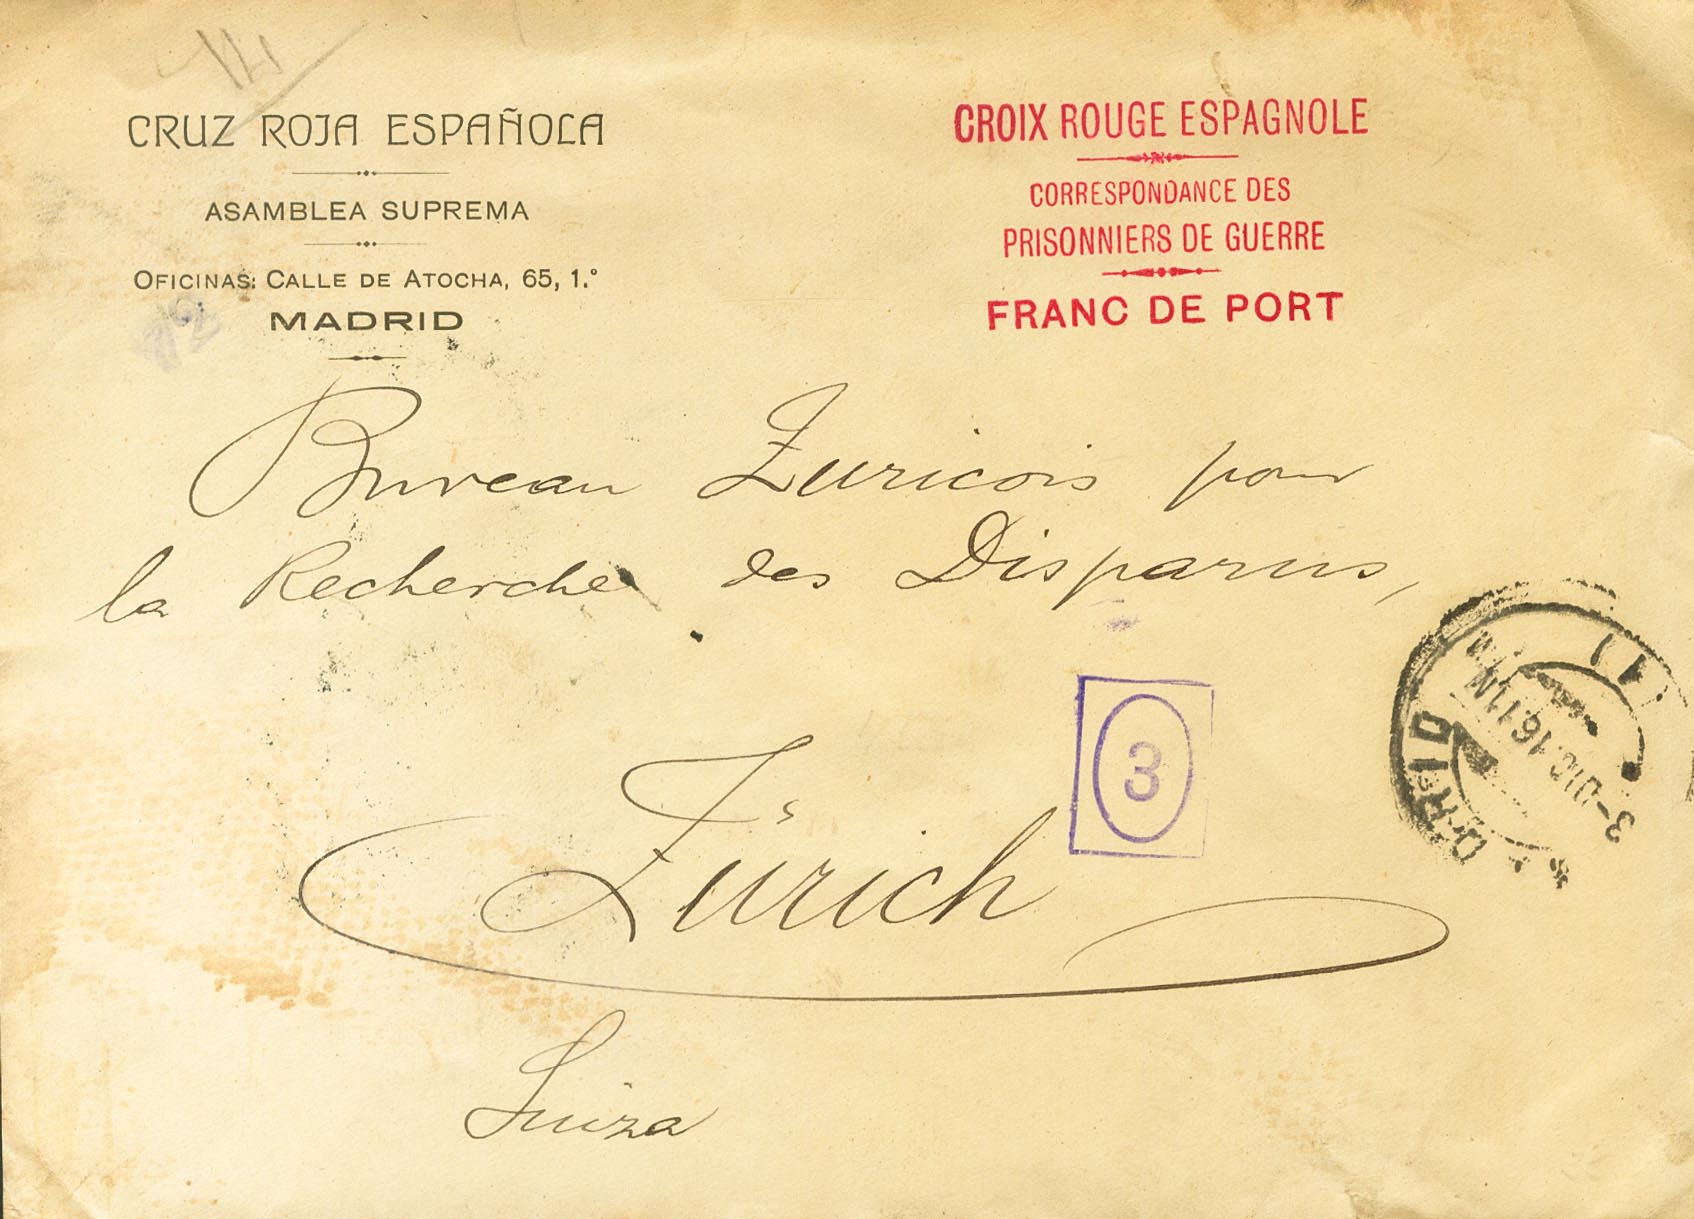 CRUZ ROJA ESPAÑOLA
ASAMBLEA SUPREMA
OFICINAS: CALLE DE ATOCHA, 65, 1.°
MADRID
CROIX ROUGE ESPAGNOLE
CORRESPONDANCE DES
PRISONNIERS DE GUERRE
FRANC DE PORT
Bureau Zuricois pour
la Recherche des Disparus,
3
Zürich
Suiza
3-DIC.16.11N